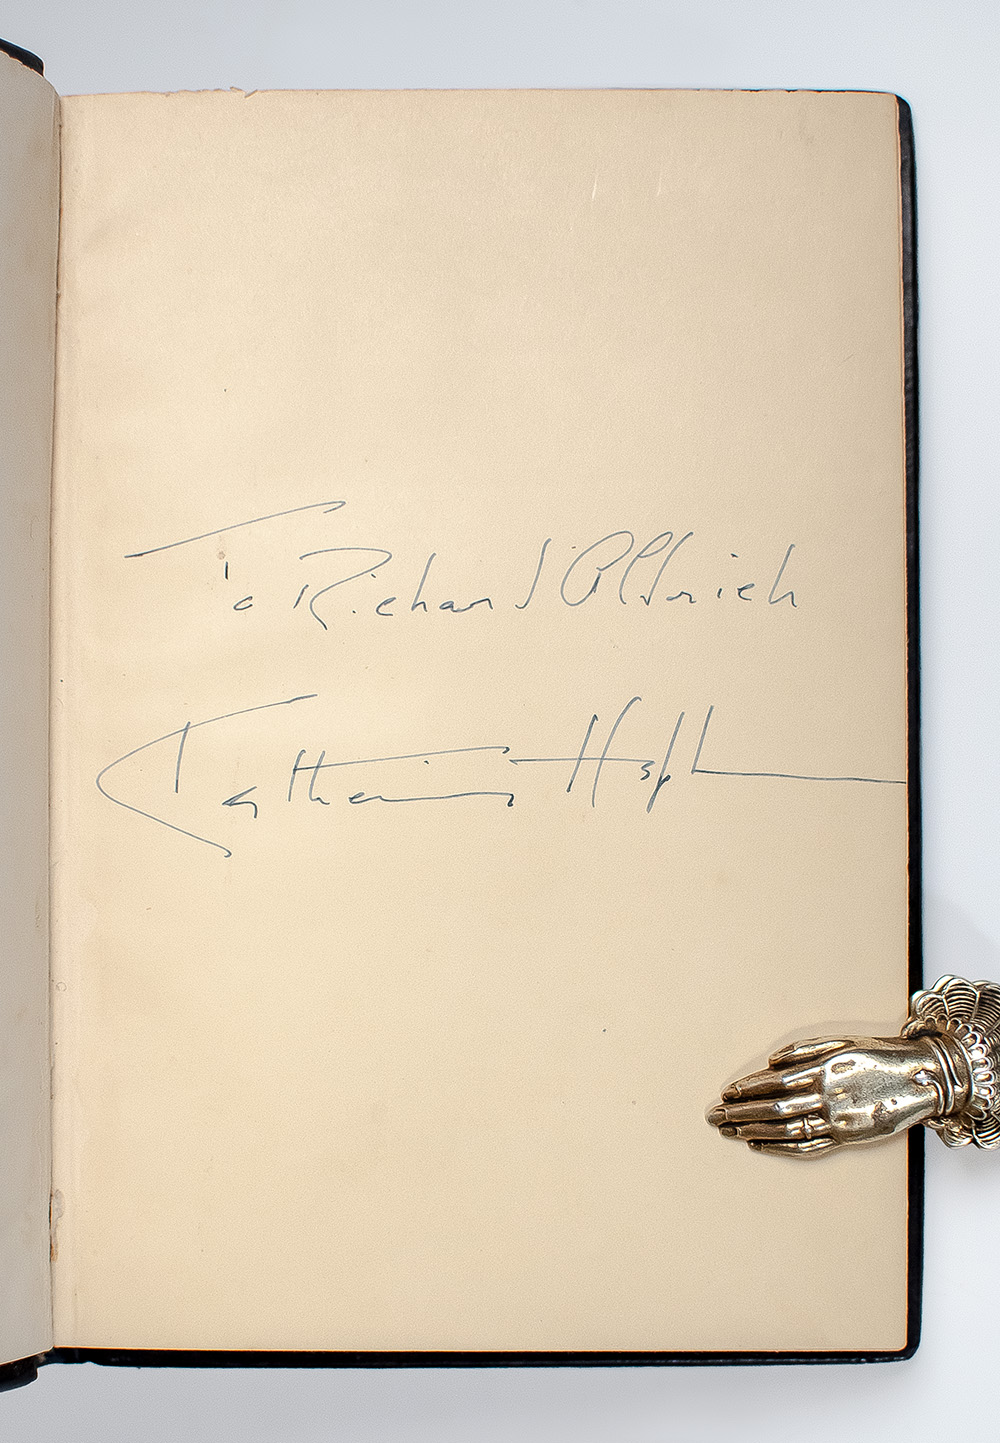 To Richard Aldrich
Katharine Hepburn